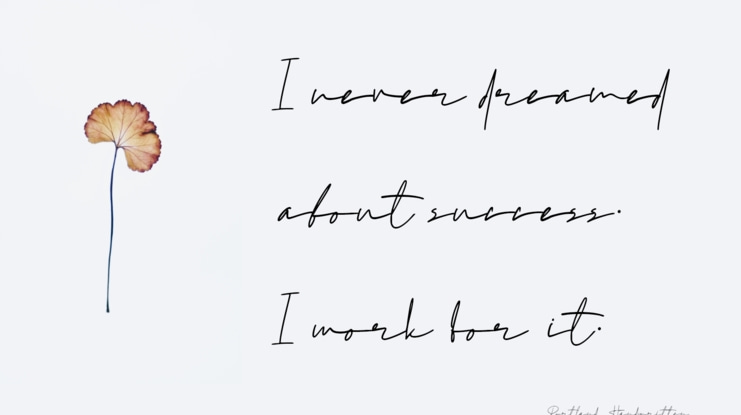 I never dreamed
about success.
I work for it.